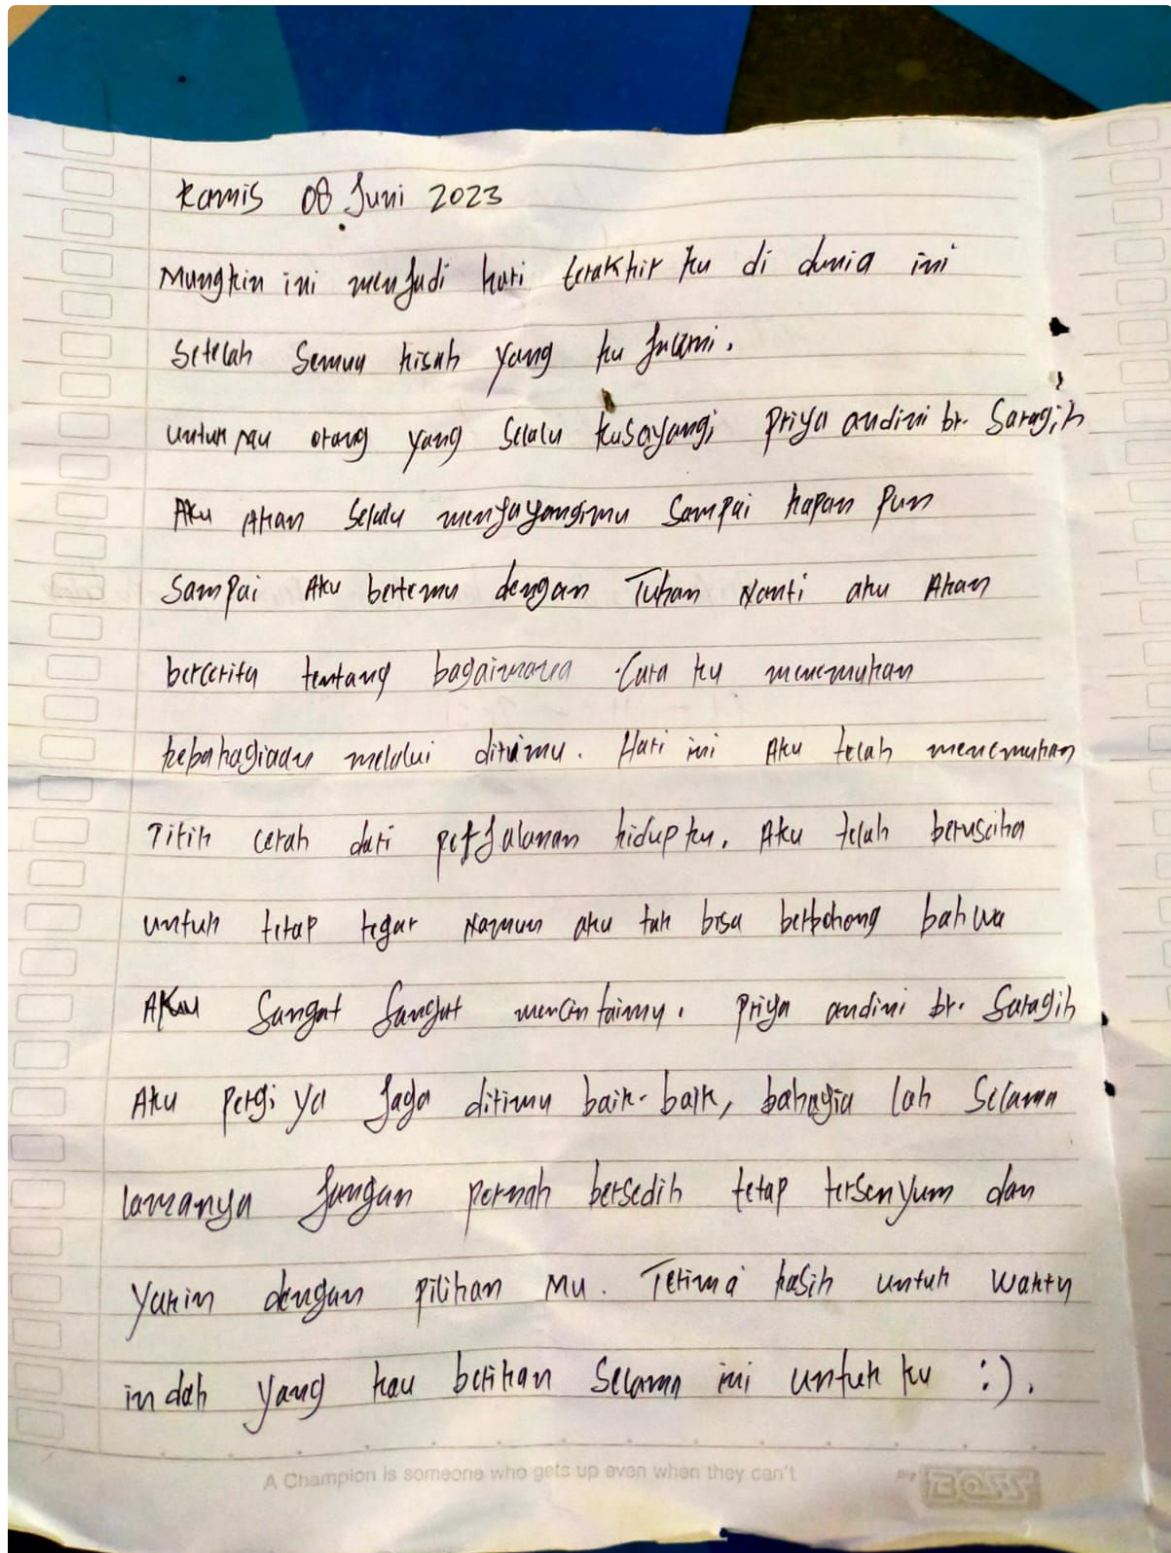 Kamis 08 Juni 2023
Mungkin ini menjadi hari terakhir ku di dunia ini
Setelah Semua kisah yang ku Jalami.
untuk mu orang yang Selalu kusayangi Priya andini br. Saragih
Aku Akan Selalu menyayangimu Sampai kapan pun
Sampai Aku bertemu dengan Tuhan Nanti aku Akan
bercerita tentang bagaimana Cara ku menemukan
kebahagiaan melalui dirimu. Hari ini Aku telah menemukan
Titik cerah dari perjalanan hidup ku. Aku telah berusaha
untuk tetap tegar Namun aku tak bisa berbohong bahwa
Aku Sangat Sangat mencintaimu. Priya andini br. Saragih
Aku pergi ya Jaga dirimu baik-baik, bahagia lah Selama
lamanya Jangan pernah bersedih tetap tersenyum dan
Yakin dengan pilihan Mu. Terima kasih untuk Waktu
indah yang kau berikan Selama ini untuk ku :).
A Champion is someone who gets up even when they can't
BY BOSS